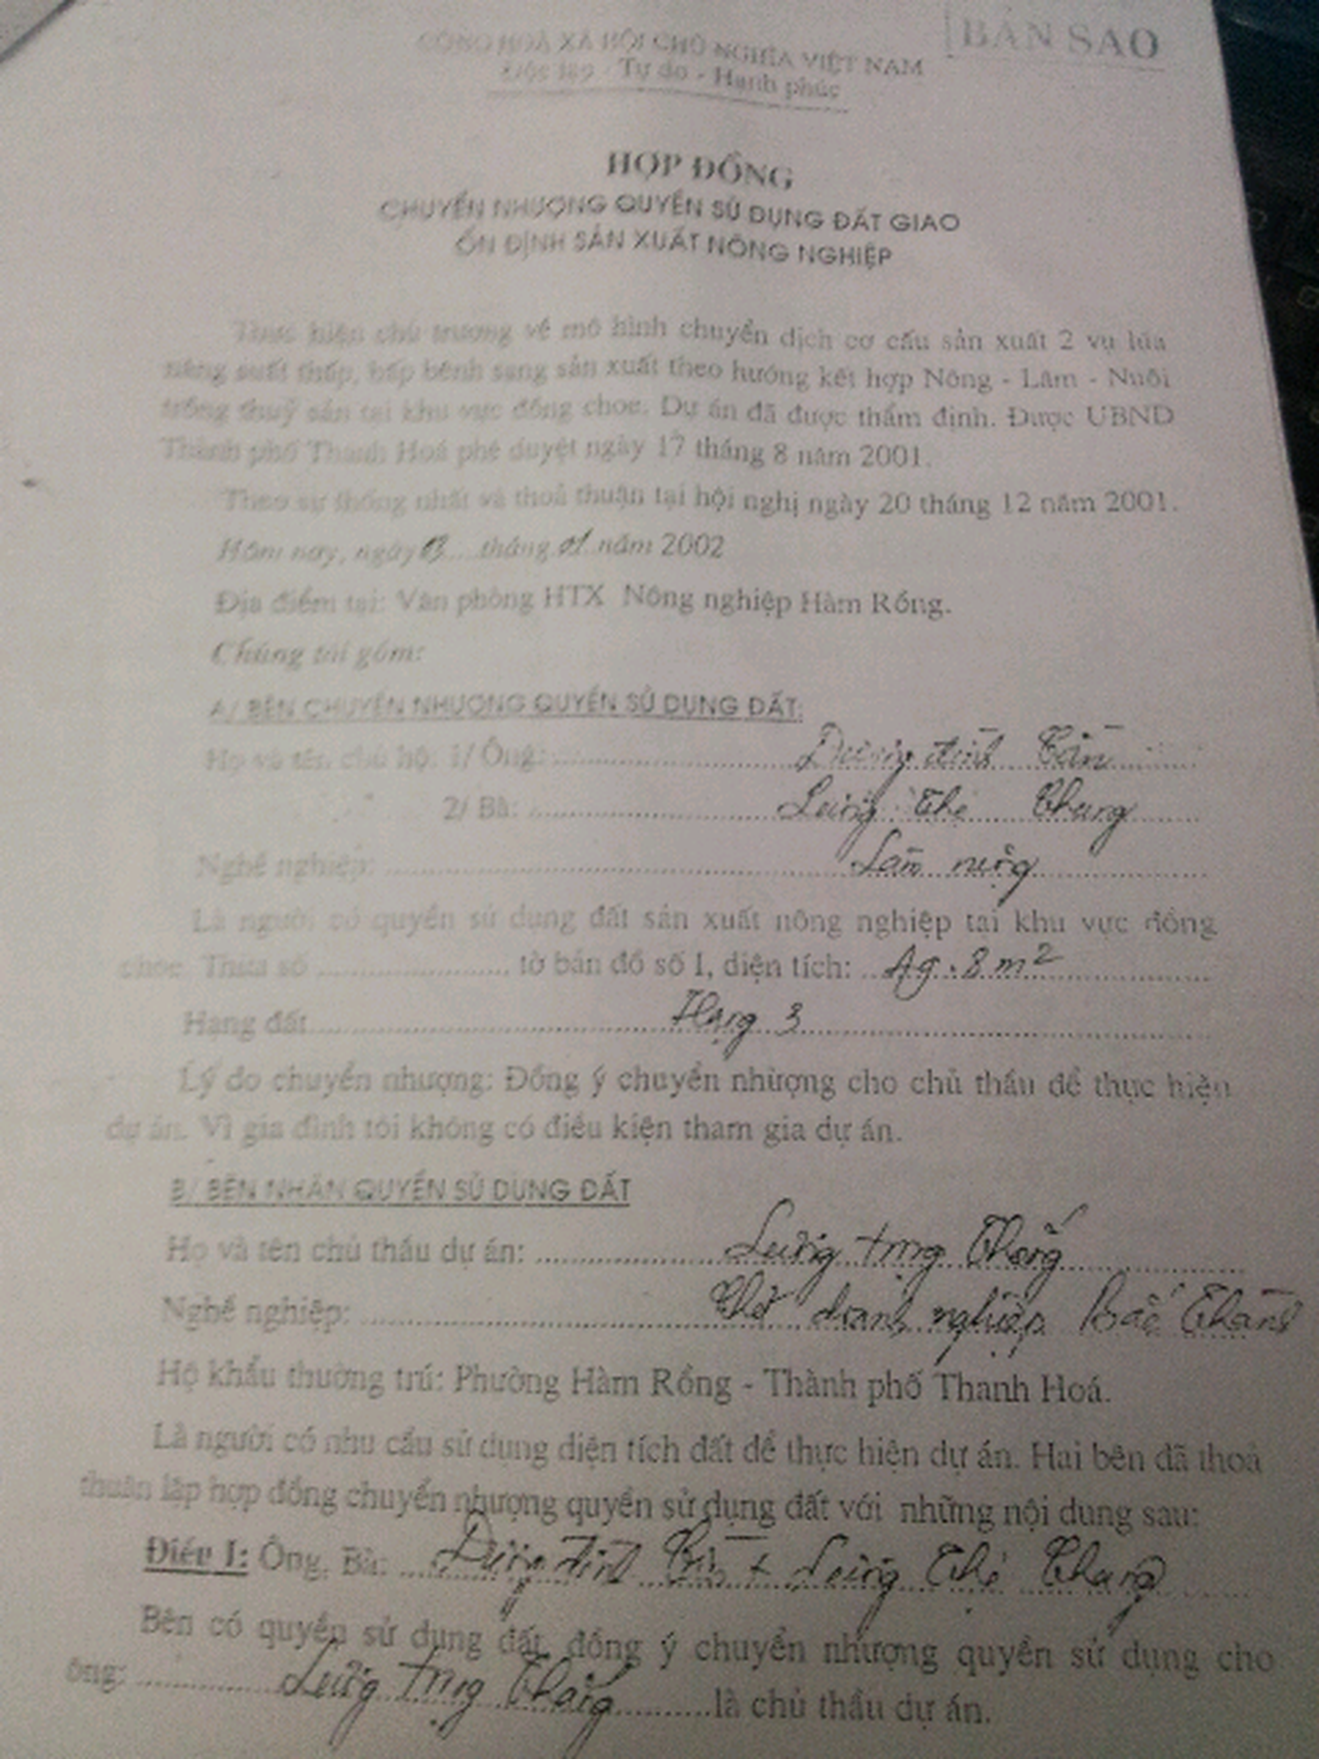 BẢN SAO
CỘNG HOÀ XÃ HỘI CHỦ NGHĨA VIỆT NAM
Độc lập - Tự do - Hạnh phúc
HỢP ĐỒNG
CHUYỂN NHƯỢNG QUYỀN SỬ DỤNG ĐẤT GIAO
ỔN ĐỊNH SẢN XUẤT NÔNG NGHIỆP
Thực hiện chủ trương về mô hình chuyển dịch cơ cấu sản xuất 2 vụ lúa
năng suất thấp, bấp bênh sang sản xuất theo hướng kết hợp Nông - Lâm - Nuôi
trồng thuỷ sản tại khu vực đồng choc. Dự án đã được thẩm định. Được UBND
Thành phố Thanh Hoá phê duyệt ngày 17 tháng 8 năm 2001.
Theo sự thống nhất và thoả thuận tại hội nghị ngày 20 tháng 12 năm 2001.
Hôm nay, ngày 13 tháng 01 năm 2002
Địa điểm tại: Văn phòng HTX Nông nghiệp Hàm Rồng.
Chúng tôi gồm:
A/ BÊN CHUYỂN NHƯỢNG QUYỀN SỬ DỤNG ĐẤT:
Họ và tên chủ hộ: 1/ Ông: Dương đình
2/ Bà: Lương Thị Chung
Nghề nghiệp: Làm ruộng
Là người có quyền sử dụng đất sản xuất nông nghiệp tại khu vực đồng
choc. Thửa số ........ tờ bản đồ số 1, diện tích: m²
Hạng đất Hạng 3
Lý do chuyển nhượng: Đồng ý chuyển nhượng cho chủ thầu để thực hiện
dự án. Vì gia đình tôi không có điều kiện tham gia dự án.
B/ BÊN NHẬN QUYỀN SỬ DỤNG ĐẤT
Họ và tên chủ thầu dự án: Lương trọng Thắng
Nghề nghiệp: Chủ doanh nghiệp Bắc Thành
Hộ khẩu thường trú: Phường Hàm Rồng - Thành phố Thanh Hoá.
Là người có nhu cầu sử dụng diện tích đất để thực hiện dự án. Hai bên đã thoả
thuận lập hợp đồng chuyển nhượng quyền sử dụng đất với những nội dung sau:
Điều 1: Ông, Bà: Dương đình + Lương Thị Chung
Bên có quyền sử dụng đất, đồng ý chuyển nhượng quyền sử dụng cho
ông: Lương trọng Thắng là chủ thầu dự án.